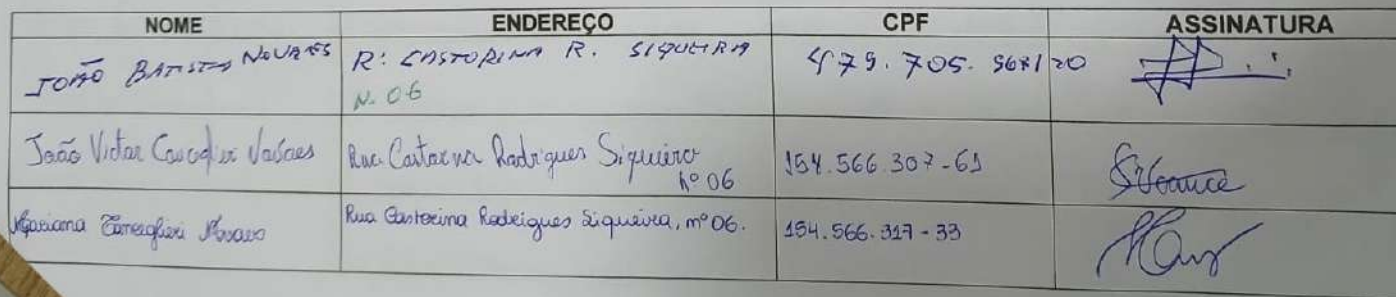 NOME ENDEREÇO CPF ASSINATURA
JOÃO BATISTA NOVAES R: CASTORINA R. SIQUEIRA 479.705.968/20
N. 06
João Victor Novaes Rua Castorina Rodrigues Siqueira 154.566.307-61
nº 06
Mariana Novaes Rua Castorina Rodrigues Siqueira, nº 06. 154.566.317-33